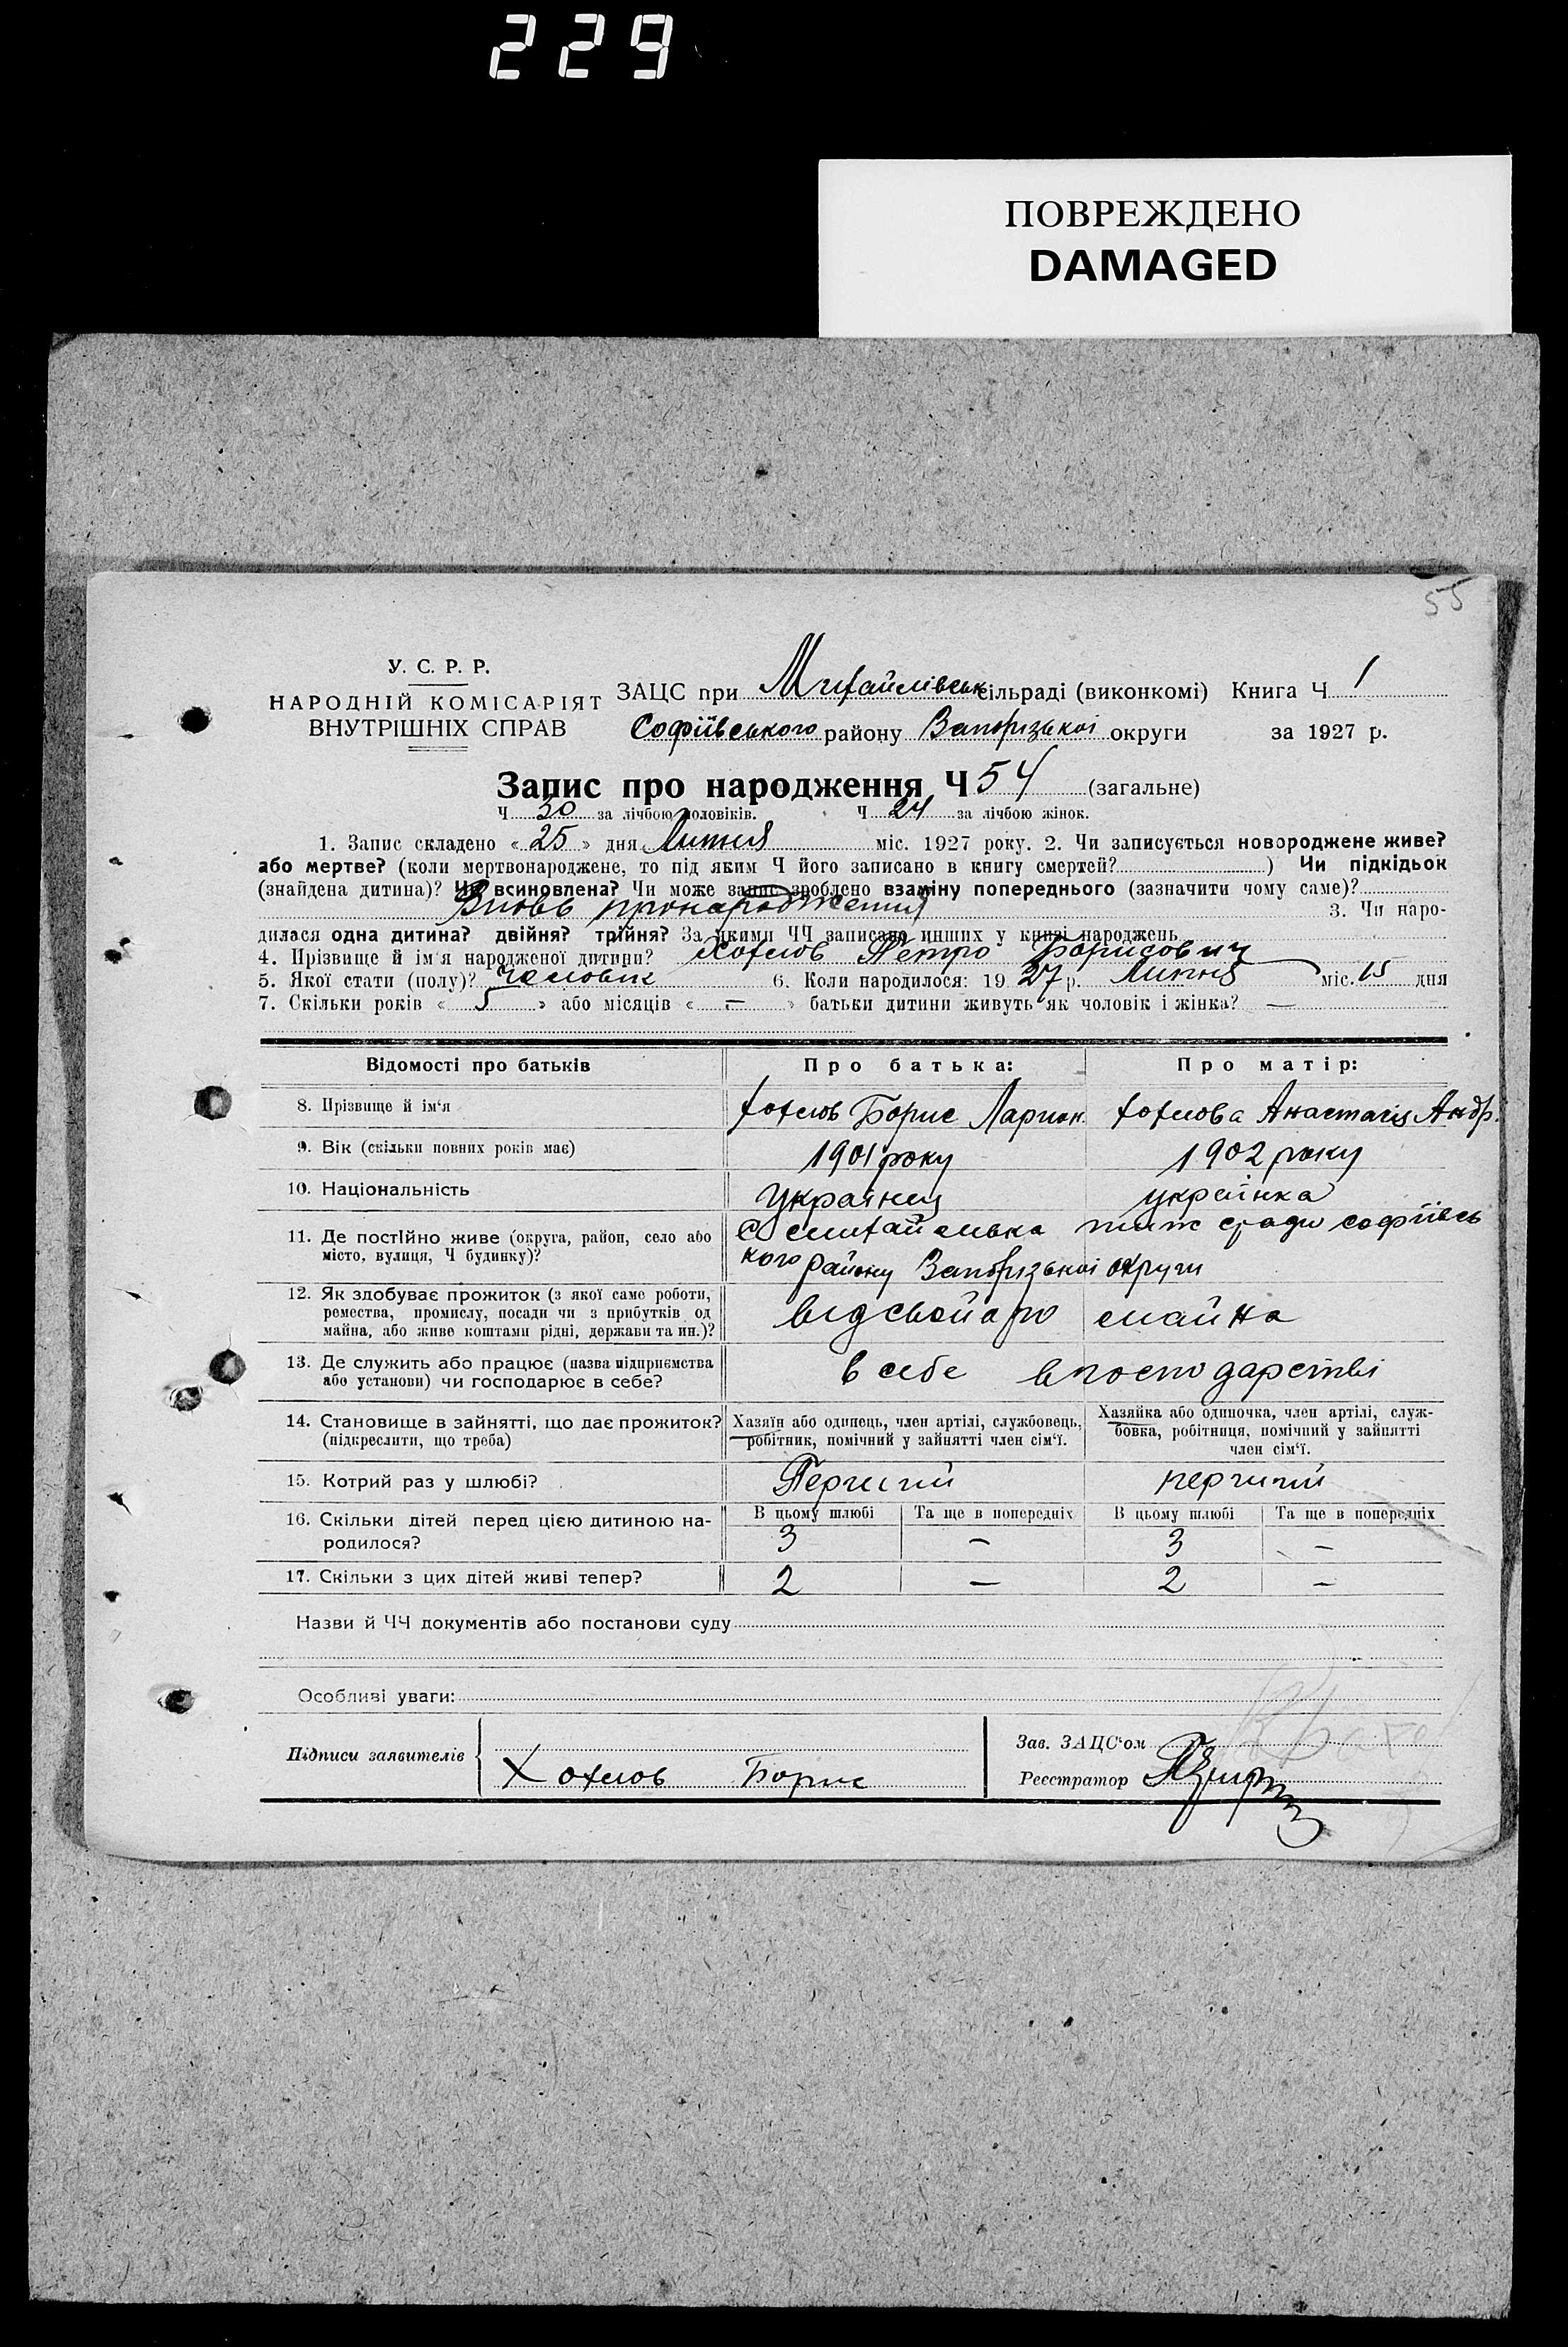 229
ПОВРЕЖДЕНО
DAMAGED
55
У. С. Р. Р.
НАРОДНІЙ КОМІСАРІЯТ
ВНУТРІШНІХ СПРАВ
ЗАЦС при Михайлівськ сільраді (виконкомі) Книга Ч 1
Софіївського району Запорізької округи за 1927 р.
Запис про народження Ч 54 (загальне)
Ч 30 за лічбою чоловіків. Ч 24 за лічбою жінок.
1. Запис складено « 25 » дня Липня міс. 1927 року. 2. Чи записується новороджене живе?
або мертве? (коли мертвонароджене, то під яким Ч його записано в книгу смертей? ) Чи підкідьок
(знайдена дитина)? Чи всиновлена? Чи може запис зроблено взаміну попереднього (зазначити чому саме)?
Вновь пронародження 3. Чи наро-
дилася одна дитина? двійня? трійня? За якими ЧЧ записано инших у книзі народжень
4. Прізвище й ім'я народженої дитини? Хохлов Петро Борисович
5. Якої стати (полу)? Человік 6. Коли народилося: 19 27 р. Липня міс. 15 дня
7. Скільки років « 5 » або місяців « — » батьки дитини живуть як чоловік і жінка? —
Відомості про батьків Про батька: Про матір:
8. Прізвище й ім'я Хохлов Борис Ларион. Хохлова Анастасия Андр.
9. Вік (скільки повних років має) 1901 року 1902 року
10. Національність Украінец украінка
11. Де постійно живе (округа, район, село або С Михайлівка тиж сради софіївсь
місто, вулиця, Ч будинку)? кого району Запорізької округи
12. Як здобуває прожиток (з якої саме роботи,
ремества, промислу, посади чи з прибутків од від свойого майна
майна, або живе коштами рідні, держави та ин.)?
13. Де служить або працює (назва підприємства в себе в господарстві
або установи) чи господарює в себе?
14. Становище в зайнятті, що дає прожиток? Хазяїн або одинець, член артілі, службовець, Хазяйка або одиночка, член артілі, служ-
(підкреслити, що треба) робітник, помічний у зайнятті член сім'ї. бовка, робітниця, помічний у зайнятті
член сім'ї.
15. Котрий раз у шлюбі? Перший перший
16. Скільки дітей перед цією дитиною на- В цьому шлюбі Та ще в попередніх В цьому шлюбі Та ще в попередніх
родилося? 3 — 3 —
17. Скільки з цих дітей живі тепер? 2 — 2 —
Назви й ЧЧ документів або постанови суду
Особливі уваги:
Підписи заявителів Хохлов Борис
Зав. ЗАЦС'ом
Реєстратор